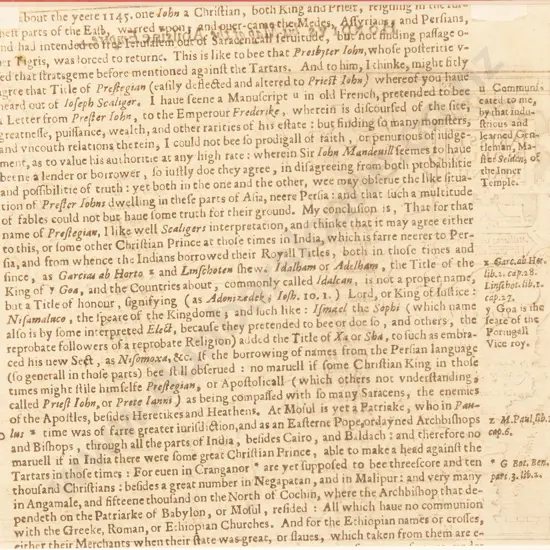 about the yeere 1145. one Iohn a Christian, both King and Priest, reigning in the fur-
thest parts of the East, warred vpon, and ouer-came the Medes, Assyrians, and Persians,
and had intended to free Ierusalem out of Saracenicall seruitude, but not finding passage o-
uer Tigris, was forced to returne. This is like to bee that Presbyter Iohn, whose posteritie v-
sed that strategeme before mentioned against the Tartars. And to him, I thinke, might fitly
agree that Title of Prestegian (easily deflected and altered to Priest Iohn) whereof you haue
heard out of Ioseph Scaliger. I haue seene a Manuscript u in old French, pretended to bee
a Letter from Prester Iohn, to the Emperour Frederike, wherein is discoursed of the site,
greatnesse, puissance, wealth, and other rarities of his estate: but finding so many monsters,
and vncouth relations therein, I could not bee so prodigall of faith, or penurious of iudge-
ment, as to value his authoritie at any high rate: wherein Sir Iohn Mandeuill seemes to haue
beene a lender or borrower, so iustly doe they agree, in disagreeing from both probabilitie
and possibilitie of truth: yet both in the one and the other, wee may obserue the like situa-
tion of Prester Iohns dwelling in these parts of Asia, neere Persia: and that such a multitude
of fables could not but haue some truth for their ground. My conclusion is, That for that
name of Prestegian, I like well Scaligers interpretation, and thinke that it may agree either
to this, or some other Christian Prince at those times in India, which is farre neerer to Per-
sia, and from whence the Indians borrowed their Royall Titles, both in those times and
since, as Garcias ab Horto x and Linschoten shew. Idalham or Adelham, the Title of the
King of y Goa, and the Countries about, commonly called Idalcan, is not a proper name,
but a Title of honour, signifying (as Adonizedek, Iosh. 10. 1.) Lord, or King of Iustice:
Nisamaluco, the speare of the Kingdome; and such like: Ismael the Sophi (which name
also is by some interpreted Elect, because they pretended to bee or doe so, and others, the
reprobate followers of a reprobate Religion) added the Title of Xa or Sha, to such as embra-
ced his new Sect, as Nisomoxa, &c. If the borrowing of names from the Persian language
(so generall in those parts) bee still obserued: no maruell if some Christian King in those
times might stile himselfe Prestegian, or Apostolicall (which others not vnderstanding,
called Priest Iohn, or Prete Ianni) as being compassed with so many Saracens, the enemies
of the Apostles, besides Heretikes and Heathens. At Mosul is yet a Patriake, who in Pau-
lus z time was of farre greater iurisdiction, and as an Easterne Pope, ordayned Archbishops
and Bishops, through all the parts of India, besides Cairo, and Baldach: and therefore no
maruell if in India there were some great Christian Prince, able to make a head against the
Tartars in those times: For euen in Cranganor * are yet supposed to bee threescore and ten
thousand Christians: besides a great number in Negapatan, and in Malipur: and very many
in Angamale, and fifteene thousand on the North of Cochin, where the Archbishop that de-
pendeth on the Patriarke of Babylon, or Mosul, resided: All which haue no communion
with the Greeke, Roman, or Ethiopian Churches. And for the Ethiopian names or crosses,
either their Merchants when their state was great, or slaues, which taken from are c-
u Communi-
cated to me,
by that indu-
strious and
learned Gen-
tleman, Ma-
ster Selden, of
the Inner
Temple.
x Garc. ab Hor.
lib. 2. cap. 28.
Linschot. lib. 1.
cap. 27.
y Goa is the
seate of the
Portugall
Vice roy.
z M. Paul, lib. 1.
cap. 6.
* G Bot. Ben.
part. 3. lib. 2.